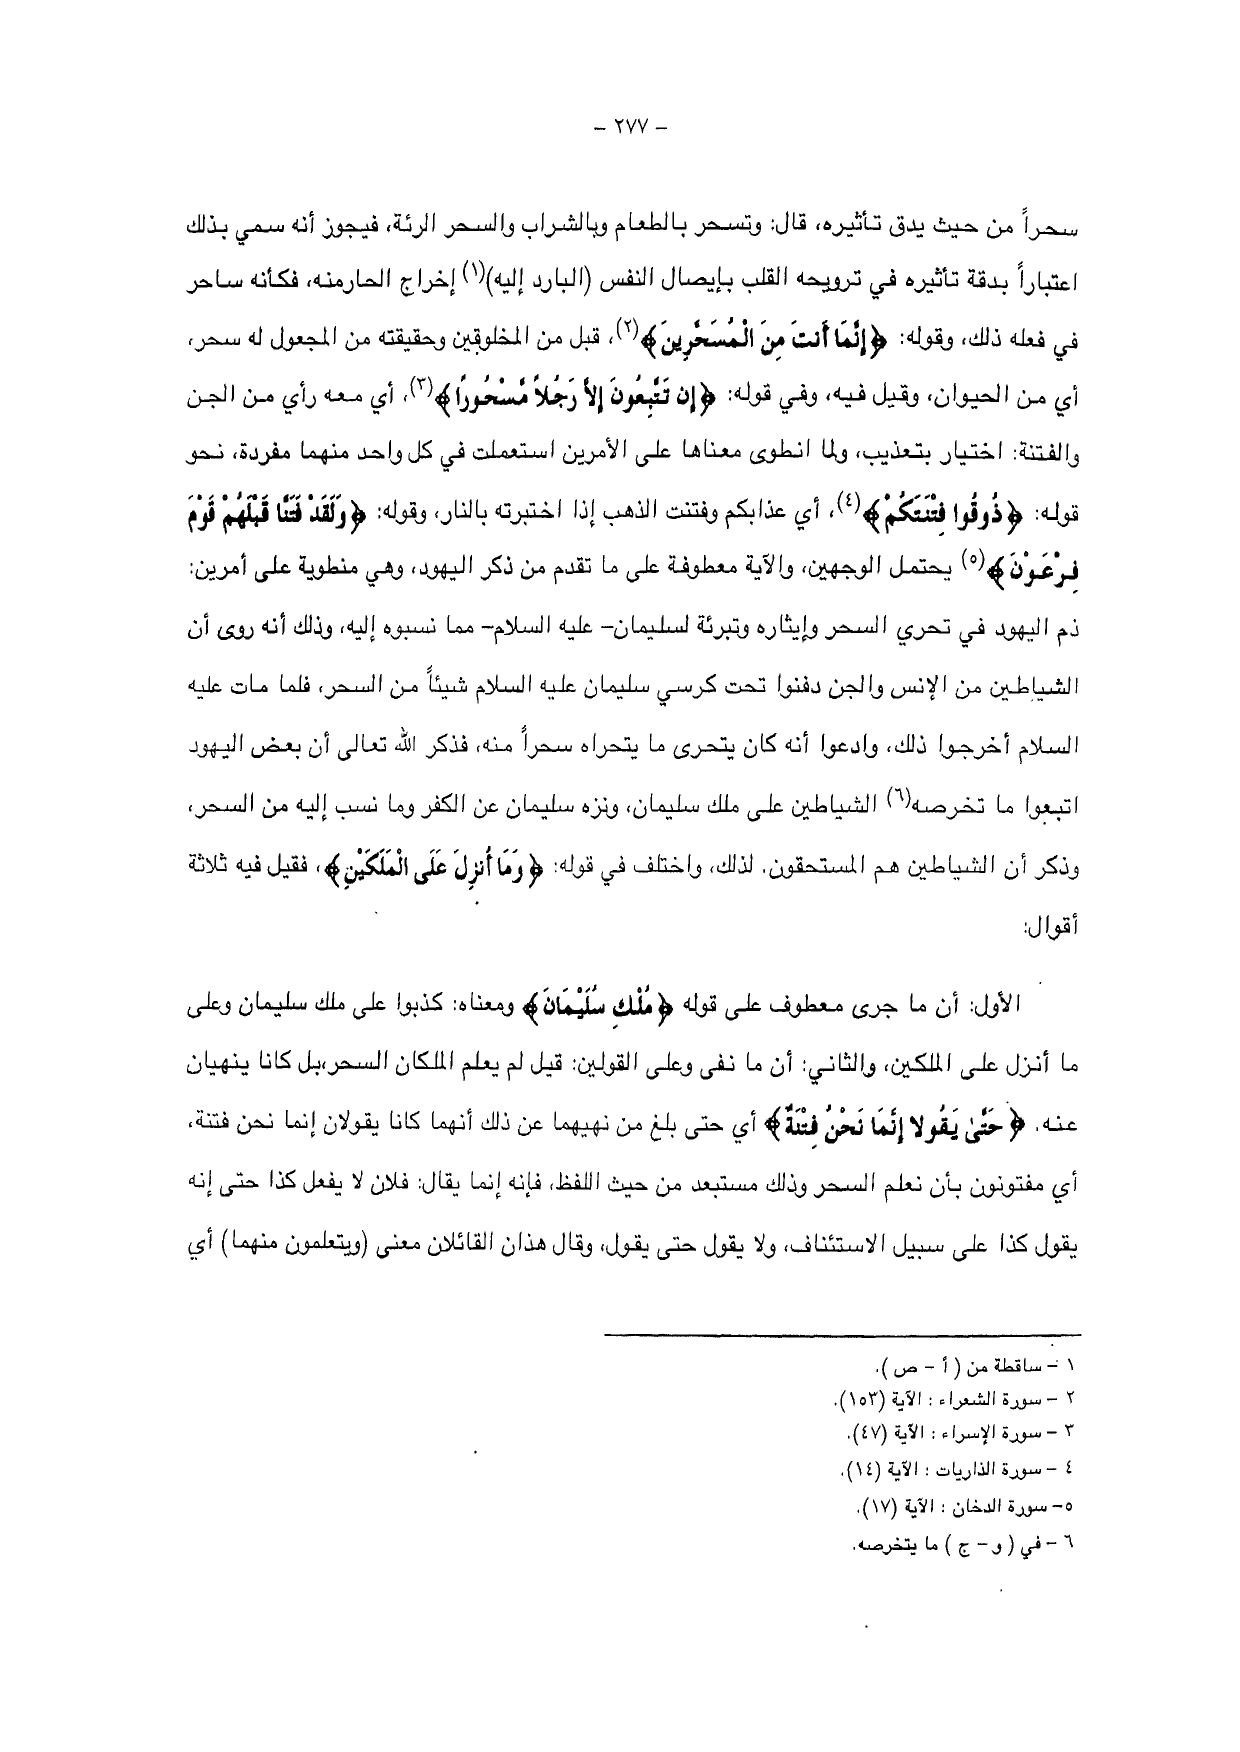 – ٢٧٧ –
سحراً من حيث يدق تأثيره، قال: وتسحر بالطعام وبالشراب والسحر الرئة، فيجوز أنه سمي بذلك
اعتباراً بدقة تأثيره في ترويحه القلب بإيصال النفس (البارد إليه)(١) إخراج الحارمنه، فكأنه ساحر
في فعله ذلك، وقوله: ﴿إِنَّمَا أَنتَ مِنَ الْمُسَحَّرِينَ﴾(٢)، قبل من المخلوقين وحقيقته من المجعول له سحر،
أي من الحيوان، وقيل فيه، وفي قوله: ﴿إِن تَتَّبِعُونَ إِلاَّ رَجُلاً مَّسْحُورًا﴾(٣)، أي معه رأي من الجن
والفتنة: اختيار بتعذيب، ولما انطوى معناها على الأمرين استعملت في كل واحد منهما مفردة، نحو
قوله: ﴿ذُوقُوا فِتْنَتَكُمْ﴾(٤)، أي عذابكم وفتنت الذهب إذا اختبرته بالنار، وقوله: ﴿وَلَقَدْ فَتَنَّا قَبْلَهُمْ قَوْمَ
فِرْعَوْنَ﴾(٥) يحتمل الوجهين، والآية معطوفة على ما تقدم من ذكر اليهود، وهي منطوية على أمرين:
ذم اليهود في تحري السحر وإيثاره وتبرئة لسليمان– عليه السلام– مما نسبوه إليه، وذلك أنه روى أن
الشياطين من الإنس والجن دفنوا تحت كرسي سليمان عليه السلام شيئاً من السحر، فلما مات عليه
السلام أخرجوا ذلك، وادعوا أنه كان يتحرى ما يتحراه سحراً منه، فذكر الله تعالى أن بعض اليهود
اتبعوا ما تخرصه(٦) الشياطين على ملك سليمان، ونزه سليمان عن الكفر وما نسب إليه من السحر،
وذكر أن الشياطين هم المستحقون. لذلك، واختلف في قوله: ﴿وَمَا أُنزِلَ عَلَى الْمَلَكَيْنِ﴾، فقيل فيه ثلاثة
أقوال:
الأول: أن ما جرى معطوف على قوله ﴿مُلْكِ سُلَيْمَانَ﴾ ومعناه: كذبوا على ملك سليمان وعلى
ما أنزل على الملكين، والثاني: أن ما نفى وعلى القولين: قيل لم يعلم الملكان السحر،بل كانا ينهيان
عنه. ﴿حَتَّىٰ يَقُولا إِنَّمَا نَحْنُ فِتْنَةٌ﴾ أي حتى بلغ من نهيهما عن ذلك أنهما كانا يقولان إنما نحن فتنة،
أي مفتونون بأن نعلم السحر وذلك مستبعد من حيث اللفظ، فإنه إنما يقال: فلان لا يفعل كذا حتى إنه
يقول كذا على سبيل الاستئناف، ولا يقول حتى يقول، وقال هذان القائلان معنى (ويتعلمون منهما) أي
١ – ساقطة من ( أ – ص ).
٢ – سورة الشعراء : الآية (١٥٣).
٣ – سورة الإسراء : الآية (٤٧).
٤ – سورة الذاريات : الآية (١٤).
٥– سورة الدخان : الآية (١٧).
٦ – في ( و – ج ) ما يتخرصه.